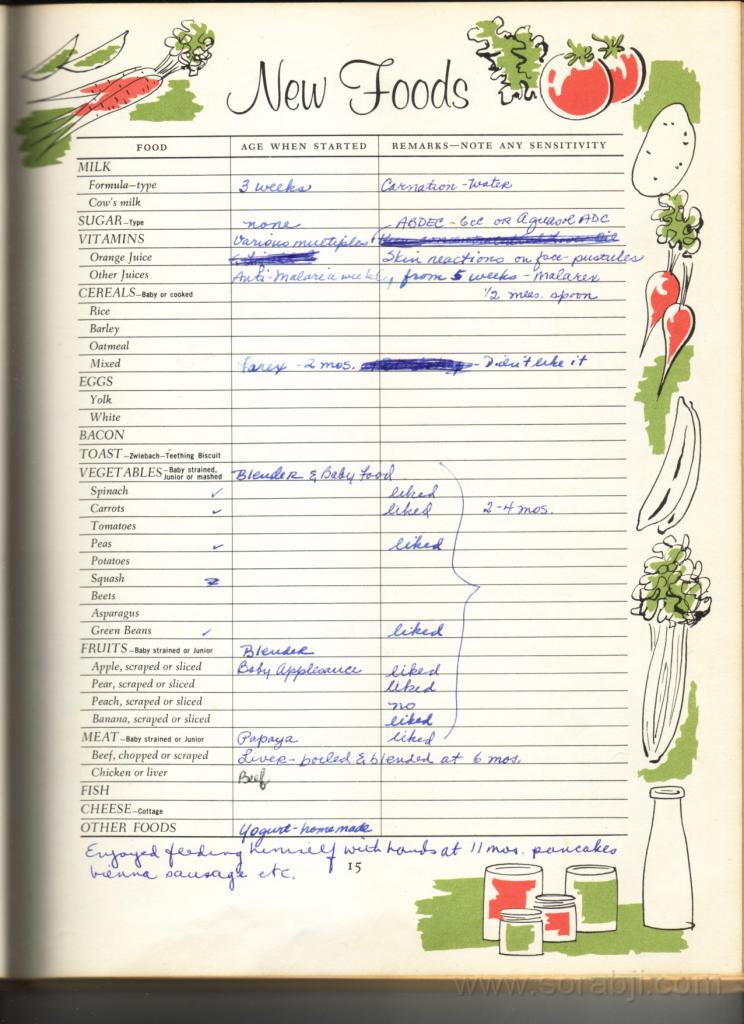 New Foods
FOOD AGE WHEN STARTED REMARKS—NOTE ANY SENSITIVITY
MILK
Formula—type 3 weeks Carnation - Water
Cow's milk
SUGAR—Type none ABDEC - 6cc or Aquasol ADC
VITAMINS Various multiples
Orange Juice Skin reactions on face - pustules
Other Juices Anti-Malaria weekly from 5 weeks - Malarex
CEREALS—Baby or cooked 1/2 meas. spoon
Rice
Barley
Oatmeal
Mixed Farex - 2 mos. - Didn't like it
EGGS
Yolk
White
BACON
TOAST—Zwiebach—Teething Biscuit
VEGETABLES—Baby strained, Junior or mashed Blender & Baby Food
Spinach ✓ liked
Carrots ✓ liked 2-4 mos.
Tomatoes
Peas ✓ liked
Potatoes
Squash
Beets
Asparagus
Green Beans ✓ liked
FRUITS—Baby strained or Junior Blender
Apple, scraped or sliced Baby Applesauce liked
Pear, scraped or sliced liked
Peach, scraped or sliced no
Banana, scraped or sliced liked
MEAT—Baby strained or Junior Papaya liked
Beef, chopped or scraped Liver - boiled & blended at 6 mos.
Chicken or liver Beef
FISH
CHEESE—Cottage
OTHER FOODS Yogurt - homemade
Enjoyed feeding himself with hands at 11 mos. pancakes
vienna sausage etc.
15
www.sorabji.com